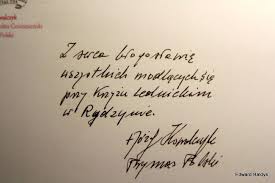 walczyk
Polski
Z serca błogosławię
wszystkich modlących się
przy Krzyżu Lednickim
w Rydzynie.
Józef Kowalczyk
Prymas Polski
Edward Baldys